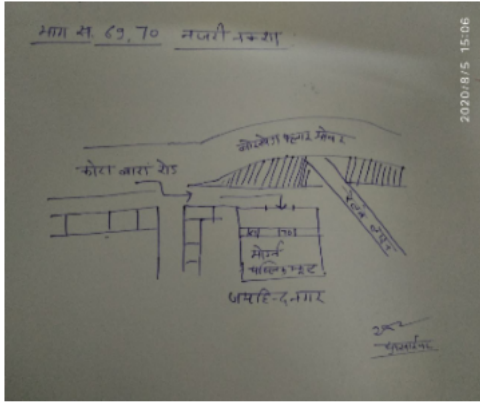 भाग स. 69, 70 नजरी नक्शा
2020/8/5 15:06
बोरखेडा फ्लाई ओवर
कोटा बारा रोड
69 70
मोर्डन
पब्लिक स्कूल
जयहिन्द नगर